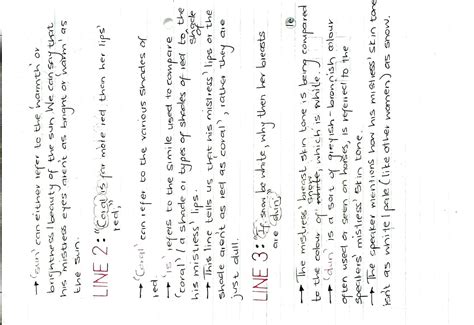 → 'Sun' can either refer to the 'warmth' or
brightness/beauty of the sun. We can say that
his mistress eyes arent as bright or 'warm' as
the sun.
LINE 2: "Coral is far more red than her lips'
red,"
→ 'Coral' can refer to the various shades of
red
→ 'is' refers to the simile used to compare
'coral' (a shade or types of shades of red) to the
shade of
his mistress' lips.
→ This line tells us that his mistress' lips or the
shade arent as red as 'coral', rather they are
just dull.
LINE 3: "If snow be white, why then her breasts
are dun;"
→ The mistress' breast skin tone is being compared
to the colour of snow, which is white.
→ 'dun' is a sort of greyish-brownish colour
often used or seen on horses, is referred to the
speakers' mistress' skin tone.
→ The speaker mentions how his mistress' skin tone
isn't as white/pale (like other women) as snow.